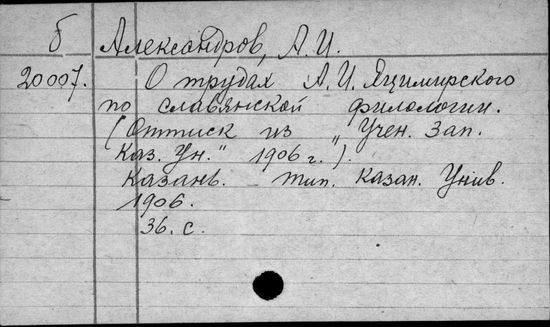 б Александров, А.И.
20007. О трудах А.И. Яцимирского
по славянской филологии.
(Оттиск из „Учен. Зап.
Каз. Ун." 1906 г.).
Казань. Тип. Казан. Унив.
1906.
36. с.